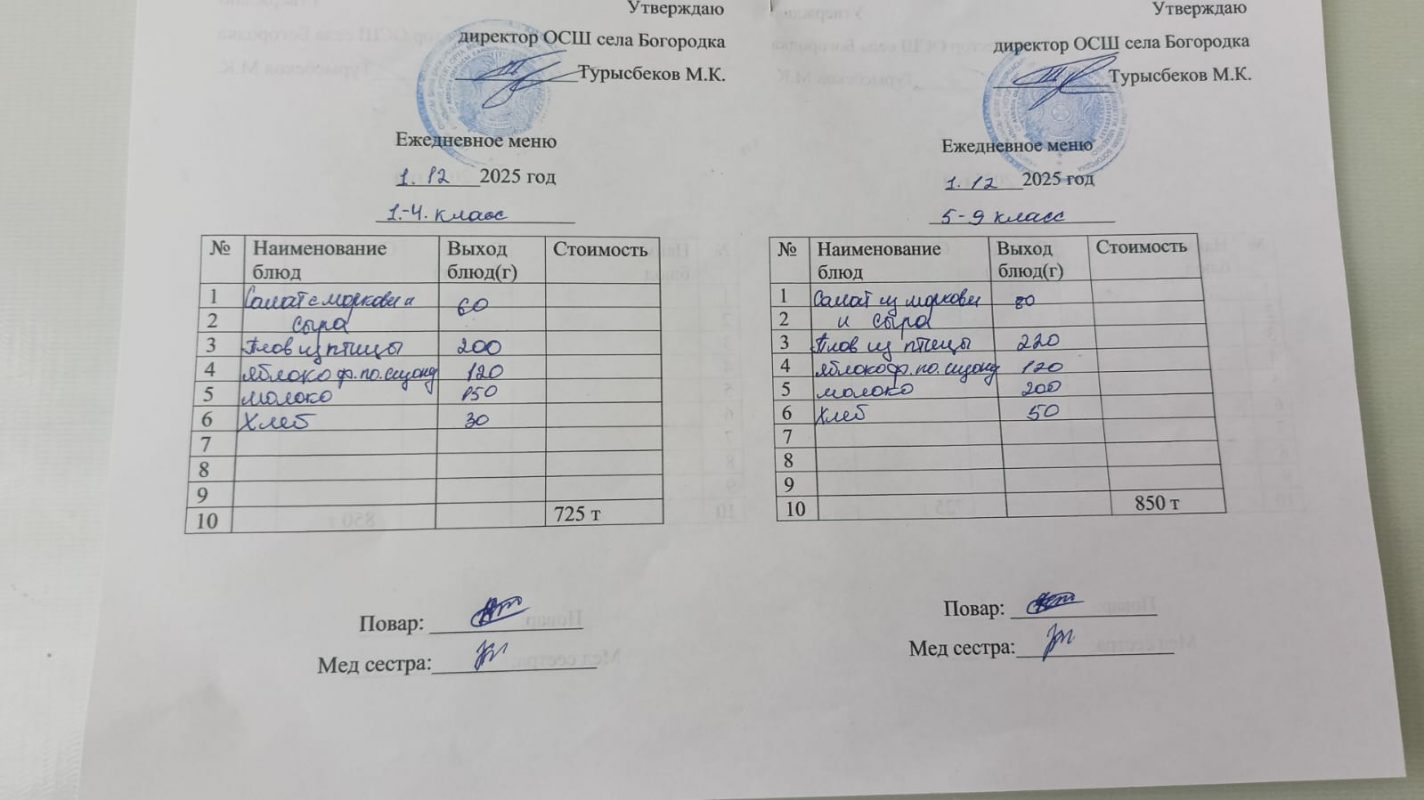 Утверждаю
директор ОСШ села Богородка
Турысбеков М.К.
Ежедневное меню
1. 12 2025 год
1.-4. класс
№ Наименование блюд Выход блюд(г) Стоимость
1 Салат с моркови и 60
2 сыра
3 Плов из птицы 200
4 яблоко фр.по.сизонд 120
5 молоко 150
6 Хлеб 30
7
8
9
10 725 т
Повар:
Мед сестра:
Утверждаю
директор ОСШ села Богородка
Турысбеков М.К.
Ежедневное меню
1. 12 2025 год
5-9 класс
№ Наименование блюд Выход блюд(г) Стоимость
1 Салат из моркови 80
2 и сыра
3 Плов из птицы 220
4 яблоко фр.по.сизонд 120
5 молоко 200
6 Хлеб 50
7
8
9
10 850 т
Повар:
Мед сестра: